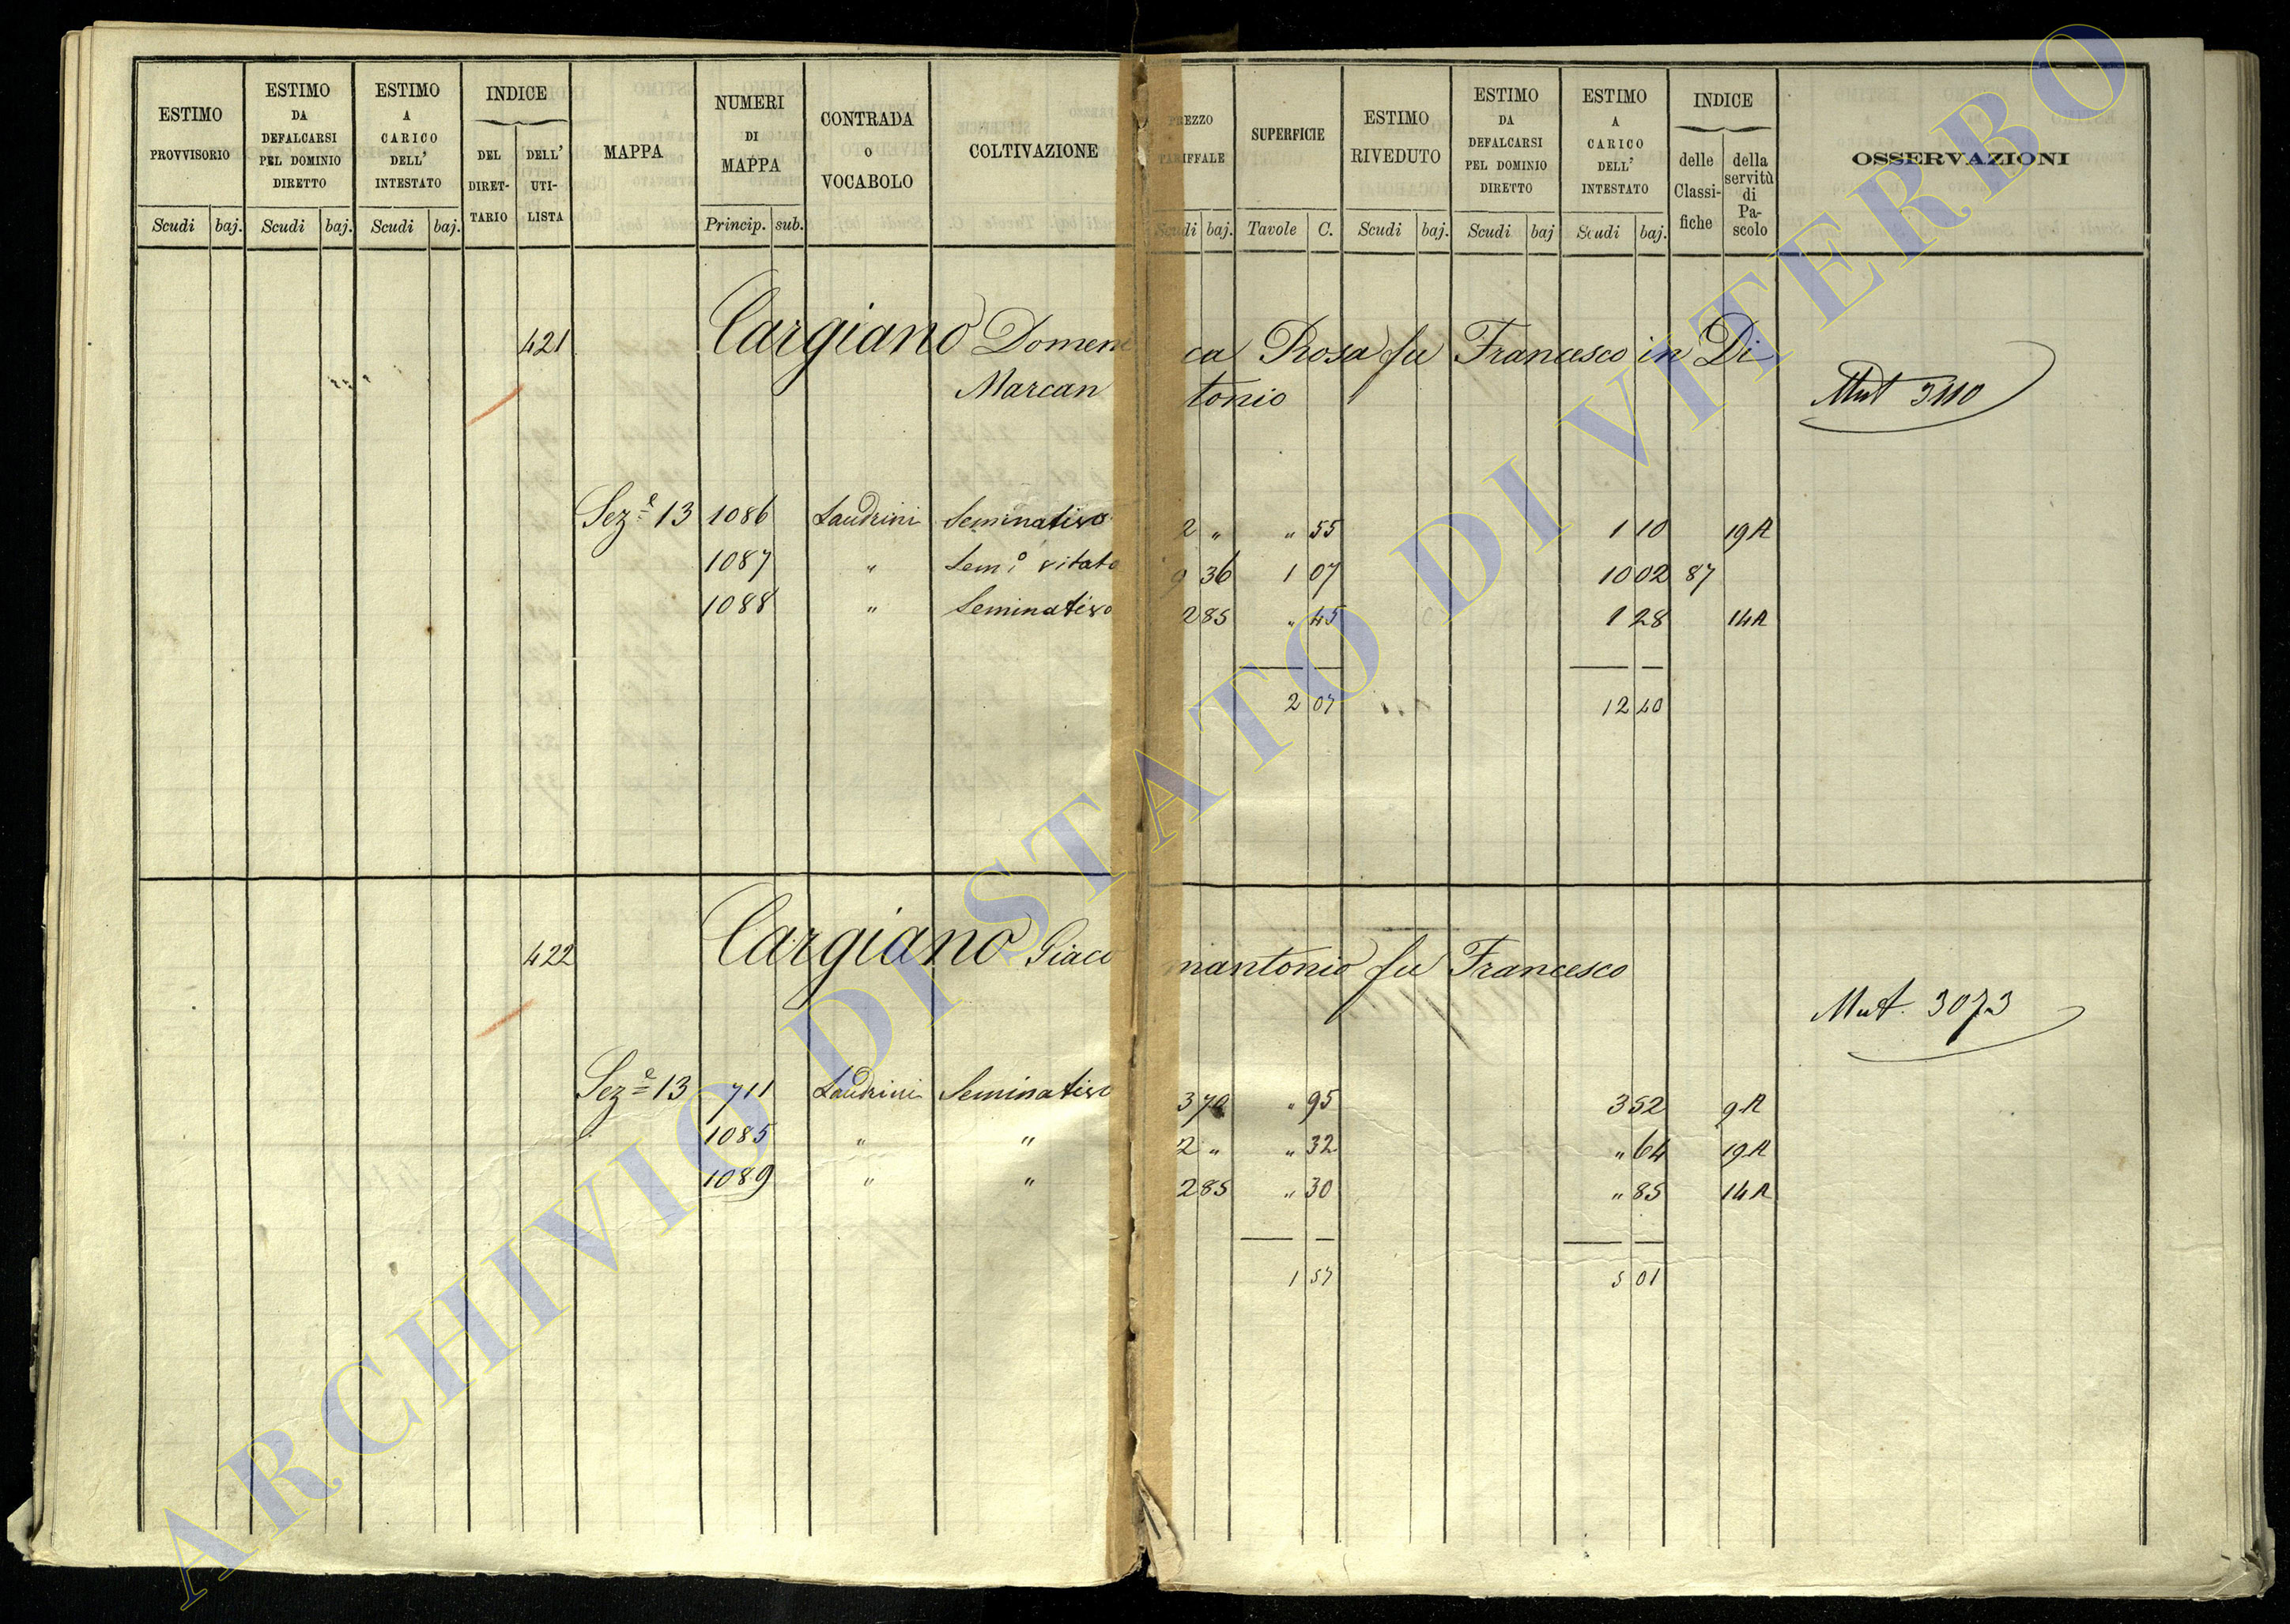 ESTIMO PROVVISORIO Scudi baj.
ESTIMO DA DEFALCARSI PEL DOMINIO DIRETTO Scudi baj.
ESTIMO A CARICO DELL' INTESTATO Scudi baj.
INDICE DEL DIRET-TARIO DELL' UTI-LISTA
MAPPA
NUMERI DI MAPPA Princip. sub.
CONTRADA O VOCABOLO
COLTIVAZIONE
PREZZO TARIFFALE Scudi baj.
SUPERFICIE Tavole C.
ESTIMO RIVEDUTO Scudi baj.
ESTIMO DA DEFALCARSI PEL DOMINIO DIRETTO Scudi baj
ESTIMO A CARICO DELL' INTESTATO Scudi baj.
INDICE delle Classi-fiche della servitù di Pa-scolo
OSSERVAZIONI
421 Cargiano Domenica Rosa fu Francesco in Di
Marcantonio
Mut 3110
Seze 13 1086 Laudrini Seminativo 2 " " 55 1 10 19A
1087 " Semo vitato 9 36 1 07 10 02 87
1088 " Seminativo 2 85 " 45 1 28 14A
2 07 12 40
422 Cargiano Giacomantonio fu Francesco
Mut. 3073
Seze 13 711 Laudrini Seminativo 3 70 " 95 3 52 9A
1085 " " 2 " " 32 " 64 19A
1089 " " 2 85 " 30 " 85 14A
1 57 5 01
ARCHIVIO DI STATO DI VITERBO